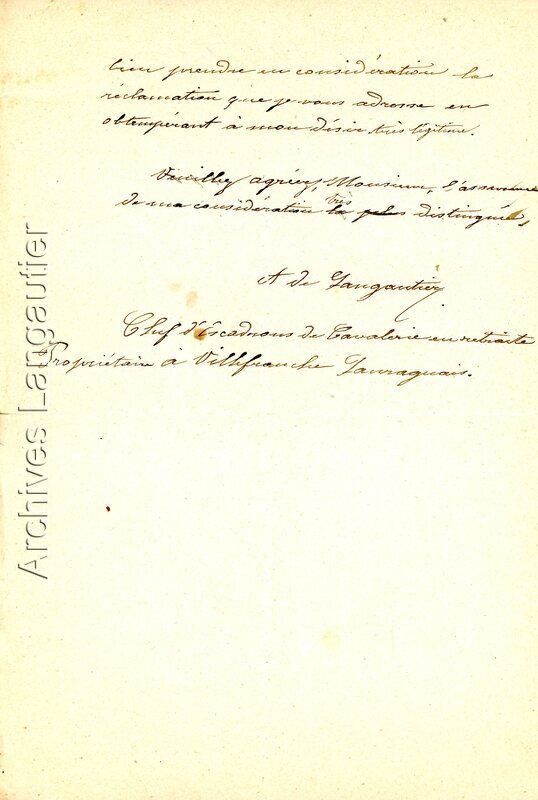 bien prendre en considération la
réclamation que je vous adresse en
obtempérant à mon désir très légitime.
Veuillez agréer, Monsieur, l'assurance
de ma considération la plus très distinguée,
A de Langautier
Chef d'Escadrons de Cavalerie en retraite
Propriétaire à Villefranche Lauraguais.
Archives Langautier